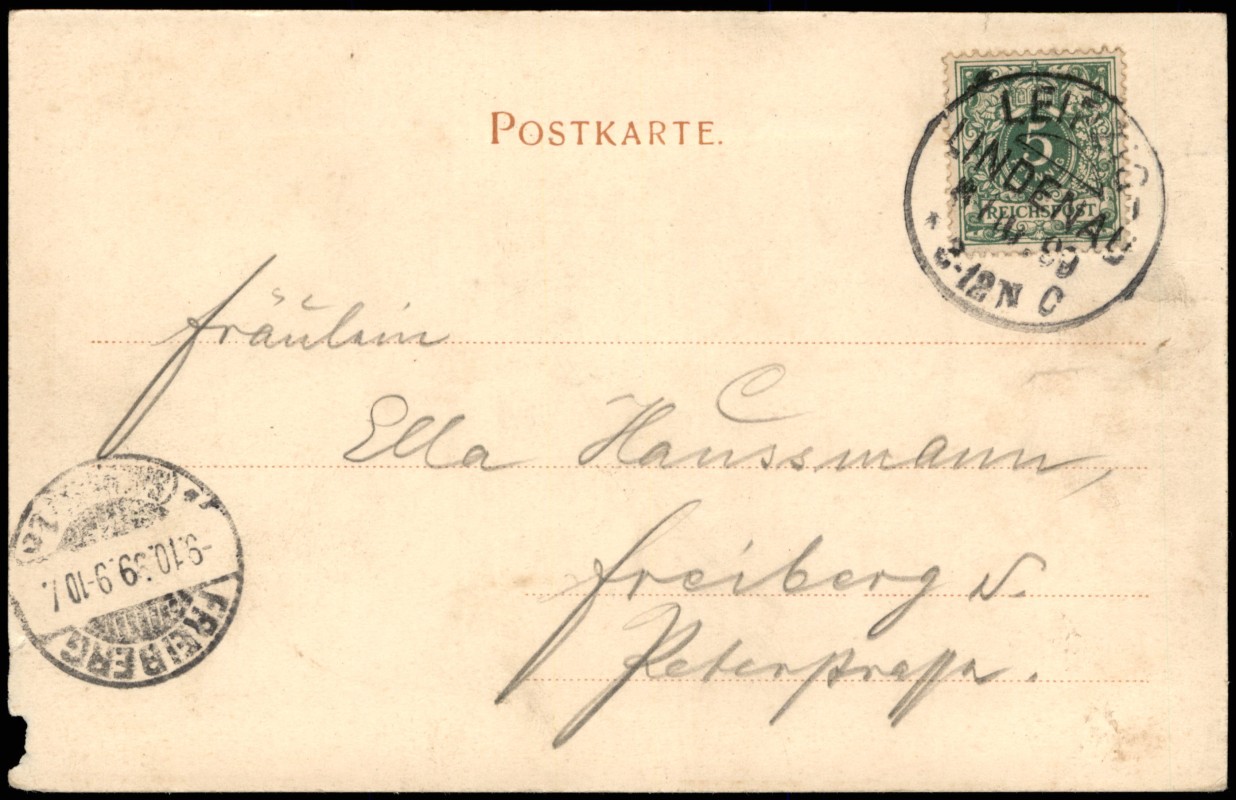 POSTKARTE.
5
REICHSPOST
LEIPZIG-
LINDENAU
99
-12 N C
Fräulein
Ella Haussmann,
Freiberg
Peterstrasse.
-9.10.99.9-10
FREIBERG